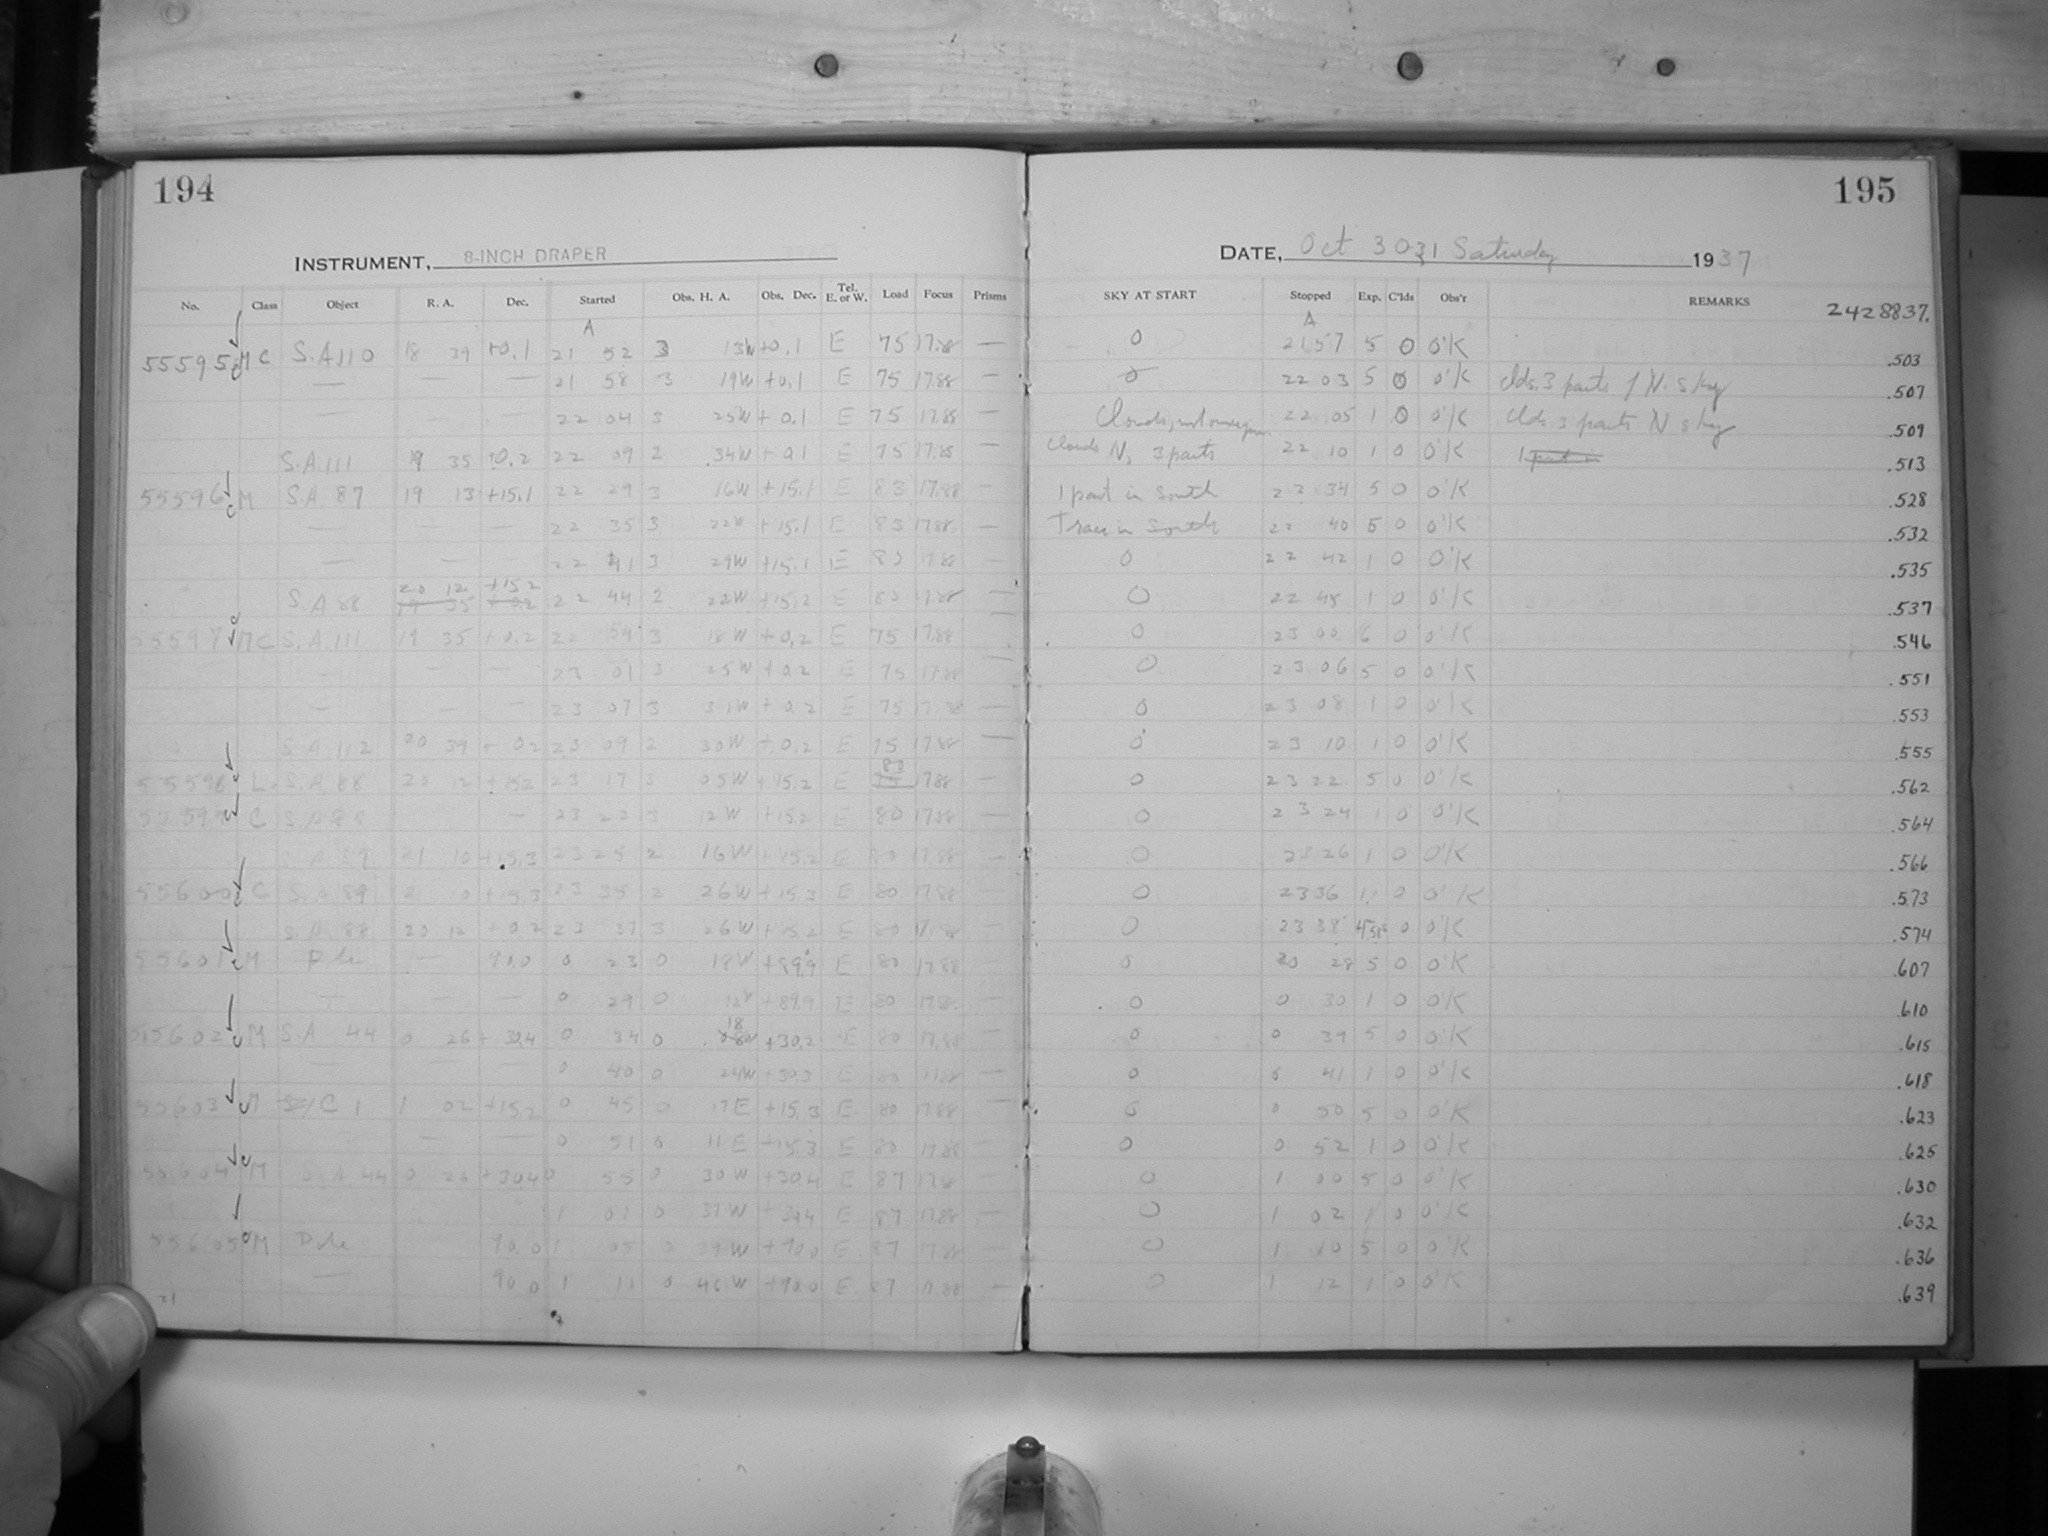 194
INSTRUMENT, 8-INCH DRAPER
No. Class Object R. A. Dec. Started Obs. H. A. Obs. Dec. Tel. E. or W. Load Focus Prisms
A
55595 MC S.A.110 18 39 +0.1 21 52 3 13W +0.1 E 75 17.88 —
— — — 21 58 3 19W +0.1 E 75 17.88 —
22 04 3 25W +0.1 E 75 17.88 —
S.A.111 19 35 +0.2 22 09 2 34W +0.1 E 75 17.88 —
55596 M S.A. 87 19 13 +15.1 22 29 3 16W +15.1 E 83 17.88 —
— — — 22 35 3 22W +15.1 E 83 17.88 —
— — 22 41 3 29W +15.1 E 83 17.88 —
S.A 88 20 12 +15.2 22 44 2 22W +15.2 E 83 17.88 —
55597 MC S.A.111 19 35 +0.2 22 54 3 18W +0.2 E 75 17.88 —
— — — 23 01 3 25W +0.2 E 75 17.88 —
— — — 23 07 3 31W +0.2 E 75 17.88 —
S.A.112 20 39 +0.2 23 09 2 30W +0.2 E 75 17.88 —
55598 L S.A. 88 20 12 +15.2 23 17 3 05W +15.2 E 83 17.88 —
55599 C S.A 88 — 23 23 3 12W +15.2 E 80 17.88 —
S.A 89 21 10 +15.3 23 25 2 16W +15.2 E 80 17.88 —
55600 C S.A. 89 21 10 +15.3 23 35 2 26W +15.3 E 80 17.88 —
S.A. 88 20 12 +0.2 23 37 3 26W +15.2 E 80 17.88 —
55601 M Pole — 90.0 0 23 0 18W +89.9 E 80 17.88 —
— — — 0 29 0 +89.9 E 80 17.88 —
55602 M S.A 44 0 26 +30.4 0 34 0 18W +30.2 E 80 17.88 —
0 40 0 24W +30.3 E 80 17.88 —
55603 M C 1 1 02 +15.2 0 45 0 17E +15.3 E 80 17.88 —
— — 0 51 0 11E +15.3 E 80 17.88 —
55604 M S.A 44 0 26 +30.4 0 55 0 30W +30.4 E 87 17.88 —
1 01 0 37W E 87 17.88 —
55605 M Pole 90.0 1 05 0 W +90.0 E 87 17.88 —
— 90.0 1 11 0 46W +90.0 E 87 17.88 —
21
195
DATE, Oct 30-31 Saturday 1937
SKY AT START Stopped Exp. C'lds Obs'r REMARKS
A 2428837.
0 21 57 5 0 O'K .503
0 22 03 5 0 O'K clds. 3 parts of N. sky .507
Clouds, 22 05 1 0 O'K clds. 3 parts N sky .509
clouds N, 3 parts 22 10 1 0 O'K 1 part in .513
1 part in south 22 34 5 0 O'K .528
Trace in south 22 40 5 0 O'K .532
0 22 42 1 0 O'K .535
0 22 45 1 0 O'K .537
0 23 00 6 0 O'K .546
0 23 06 5 0 O'K .551
0 23 08 1 0 O'K .553
0 23 10 1 0 O'K .555
0 23 22 5 0 O'K .562
0 23 24 1 0 O'K .564
0 23 26 1 0 O'K .566
0 23 36 1 0 O'K .573
0 23 38 0 O'K .574
0 28 5 0 O'K .607
0 0 30 1 0 O'K .610
0 0 39 5 0 O'K .615
0 0 41 1 0 O'K .618
0 0 50 5 0 O'K .623
0 0 52 1 0 O'K .625
0 1 00 5 0 O'K .630
0 1 02 1 0 O'K .632
0 1 10 5 0 O'K .636
0 1 12 1 0 O'K .639